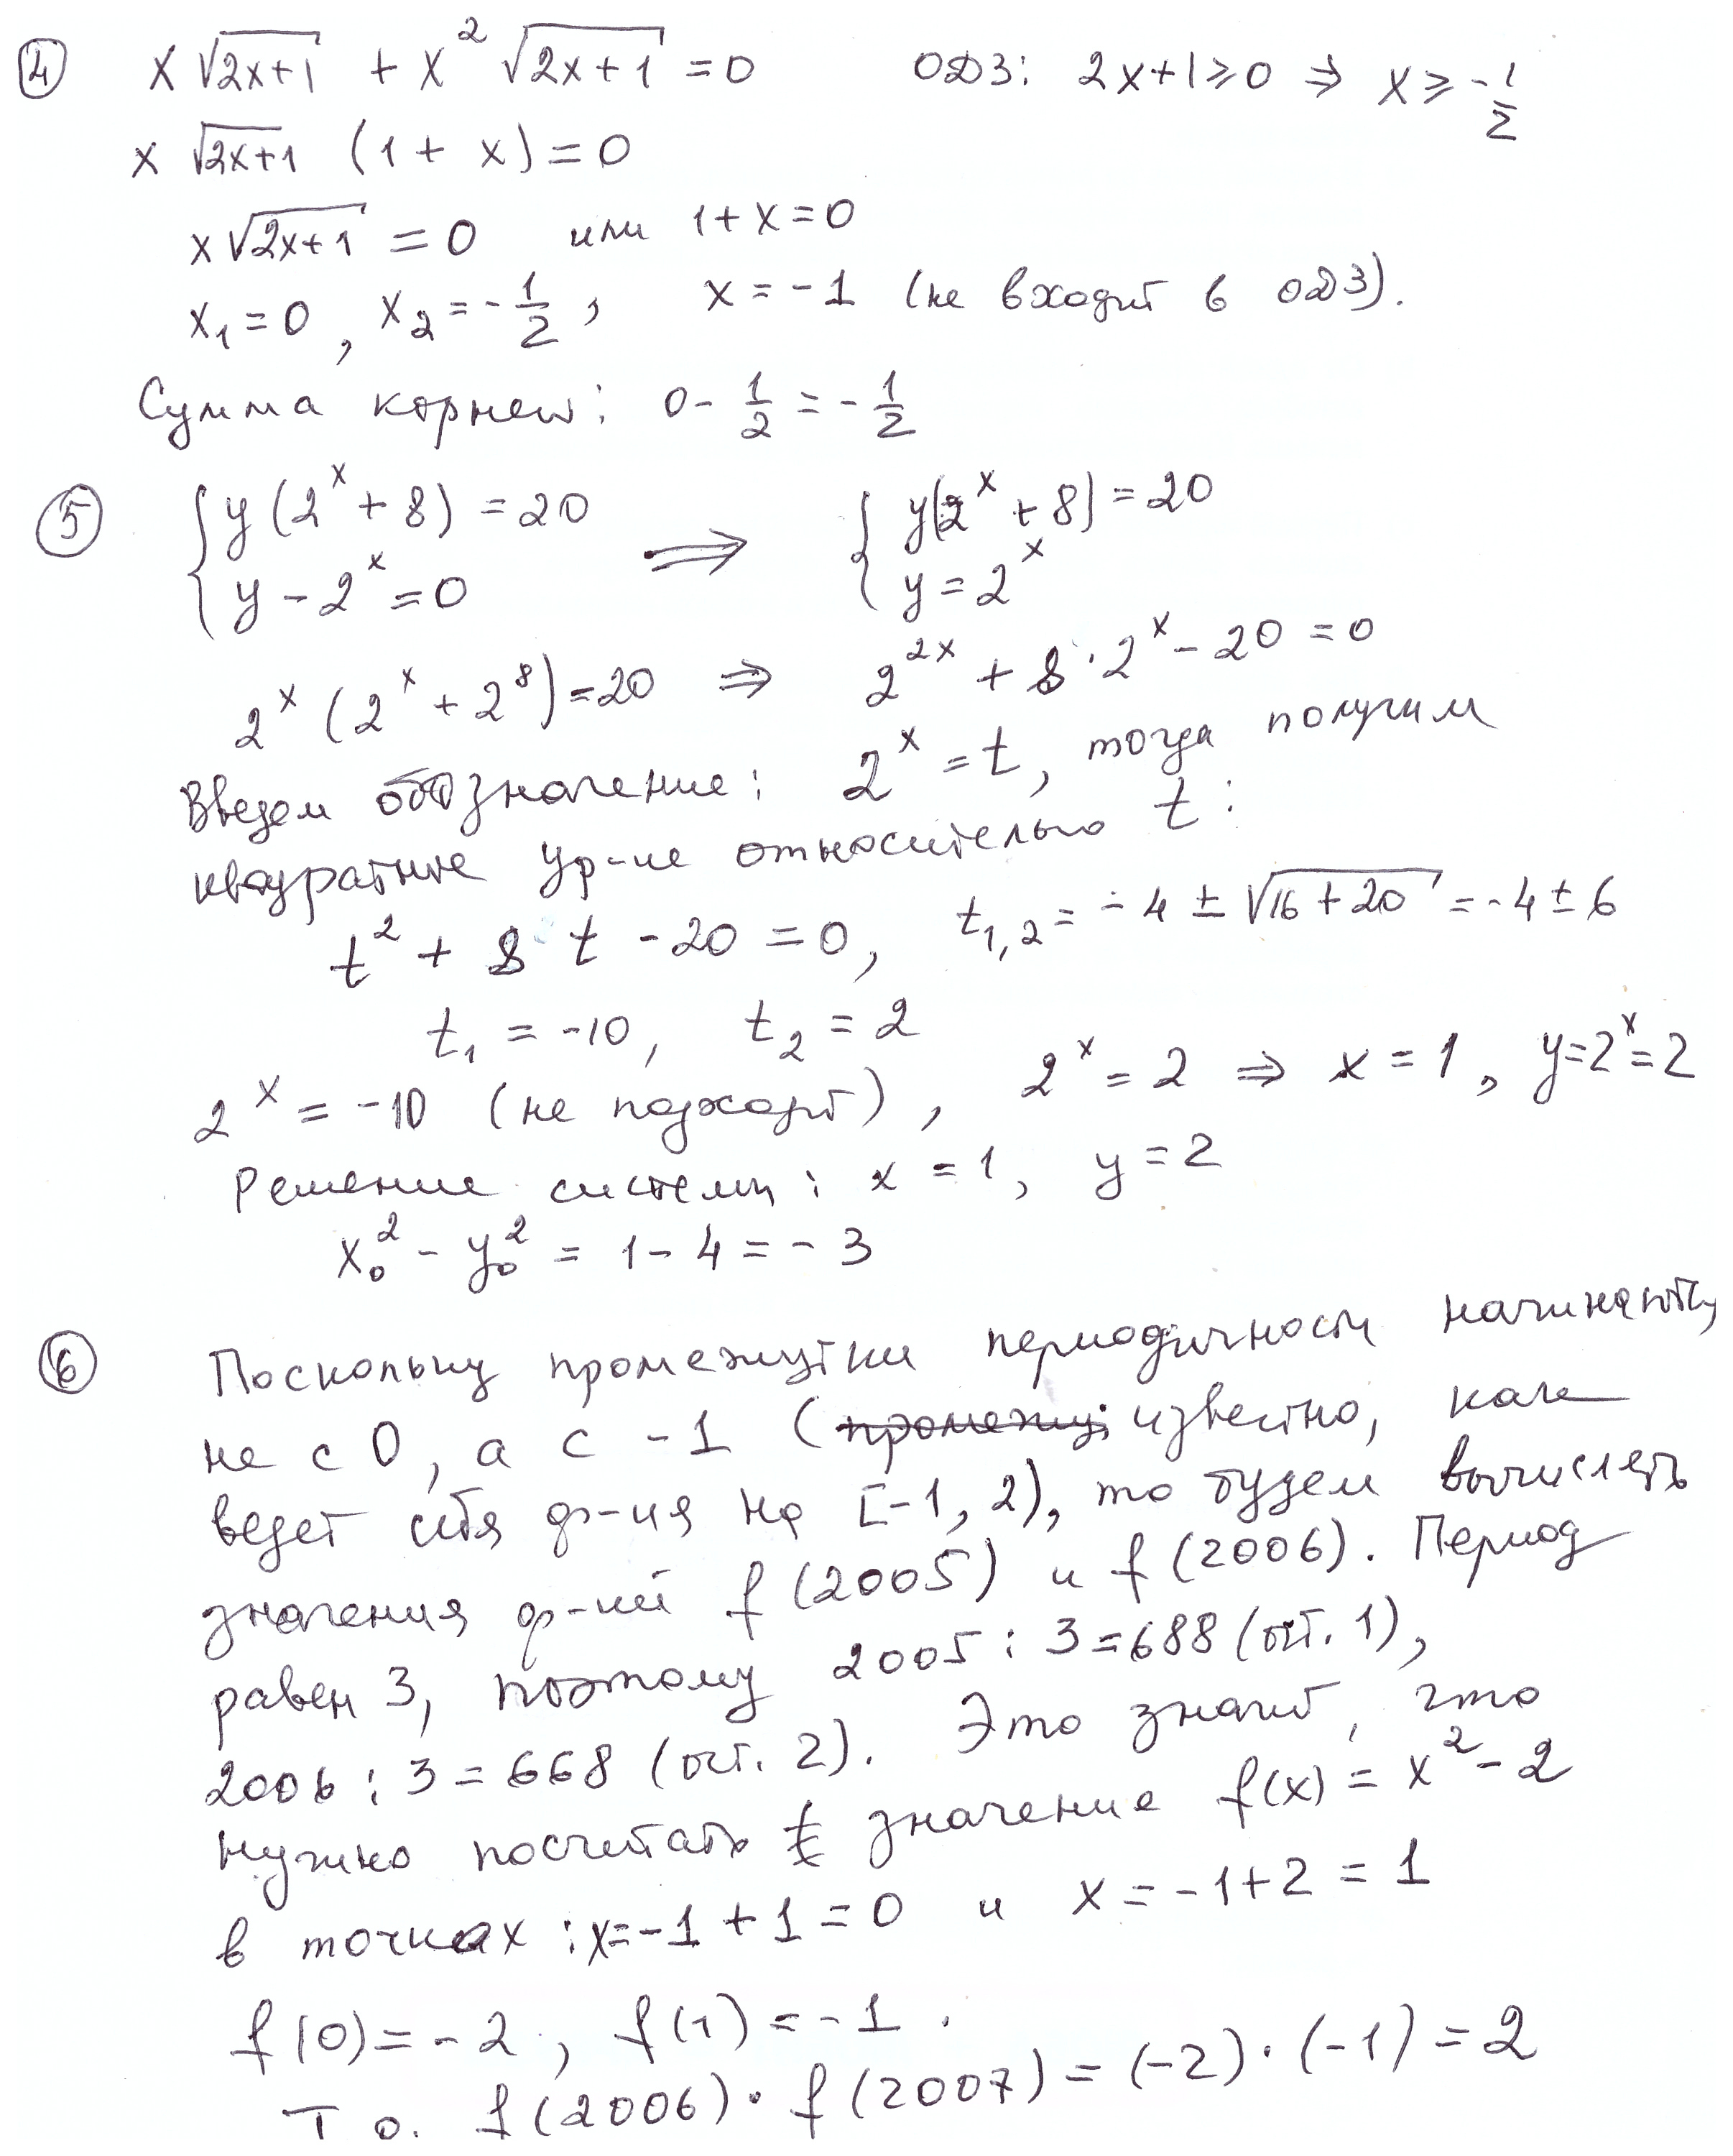 4 x√(2x+1) + x² √(2x+1) = 0 ОДЗ: 2x+1 ⩾ 0 ⇒ x ⩾ -1/2
x √(2x+1) (1 + x) = 0
x√(2x+1) = 0 или 1 + x = 0
x₁ = 0, x₂ = -1/2, x = -1 (не входит в ОДЗ).
Сумма корней: 0 - 1/2 = -1/2
5 { y(2ˣ + 8) = 20 ⟹ { y(2ˣ + 8) = 20
y - 2ˣ = 0 y = 2ˣ
2ˣ (2ˣ + 2⁸) = 20 ⇒ 2²ˣ + 8 · 2ˣ - 20 = 0
Введем обозначение: 2ˣ = t, тогда получим
квадратное ур-ие относительно t:
t² + 8 t - 20 = 0, t₁,₂ = -4 ± √(16 + 20) = -4 ± 6
t₁ = -10, t₂ = 2
2ˣ = -10 (не подходит), 2ˣ = 2 ⇒ x = 1, y = 2ˣ = 2
Решение системы: x = 1, y = 2
x₀² - y₀² = 1 - 4 = -3
6 Поскольку промежутки периодичности начинаются
не с 0, а с -1 (известно, как
ведет себя ф-ия на [-1, 2), то будем вычислять
значения ф-ий f(2005) и f(2006). Период
равен 3, поэтому 2005 : 3 = 688 (ост. 1),
2006 : 3 = 668 (ост. 2). Это значит, что
нужно посчитать значение f(x) = x² - 2
в точках : x = -1 + 1 = 0 и x = -1 + 2 = 1
f(0) = -2, f(1) = -1.
Т.о. f(2006) · f(2007) = (-2) · (-1) = 2